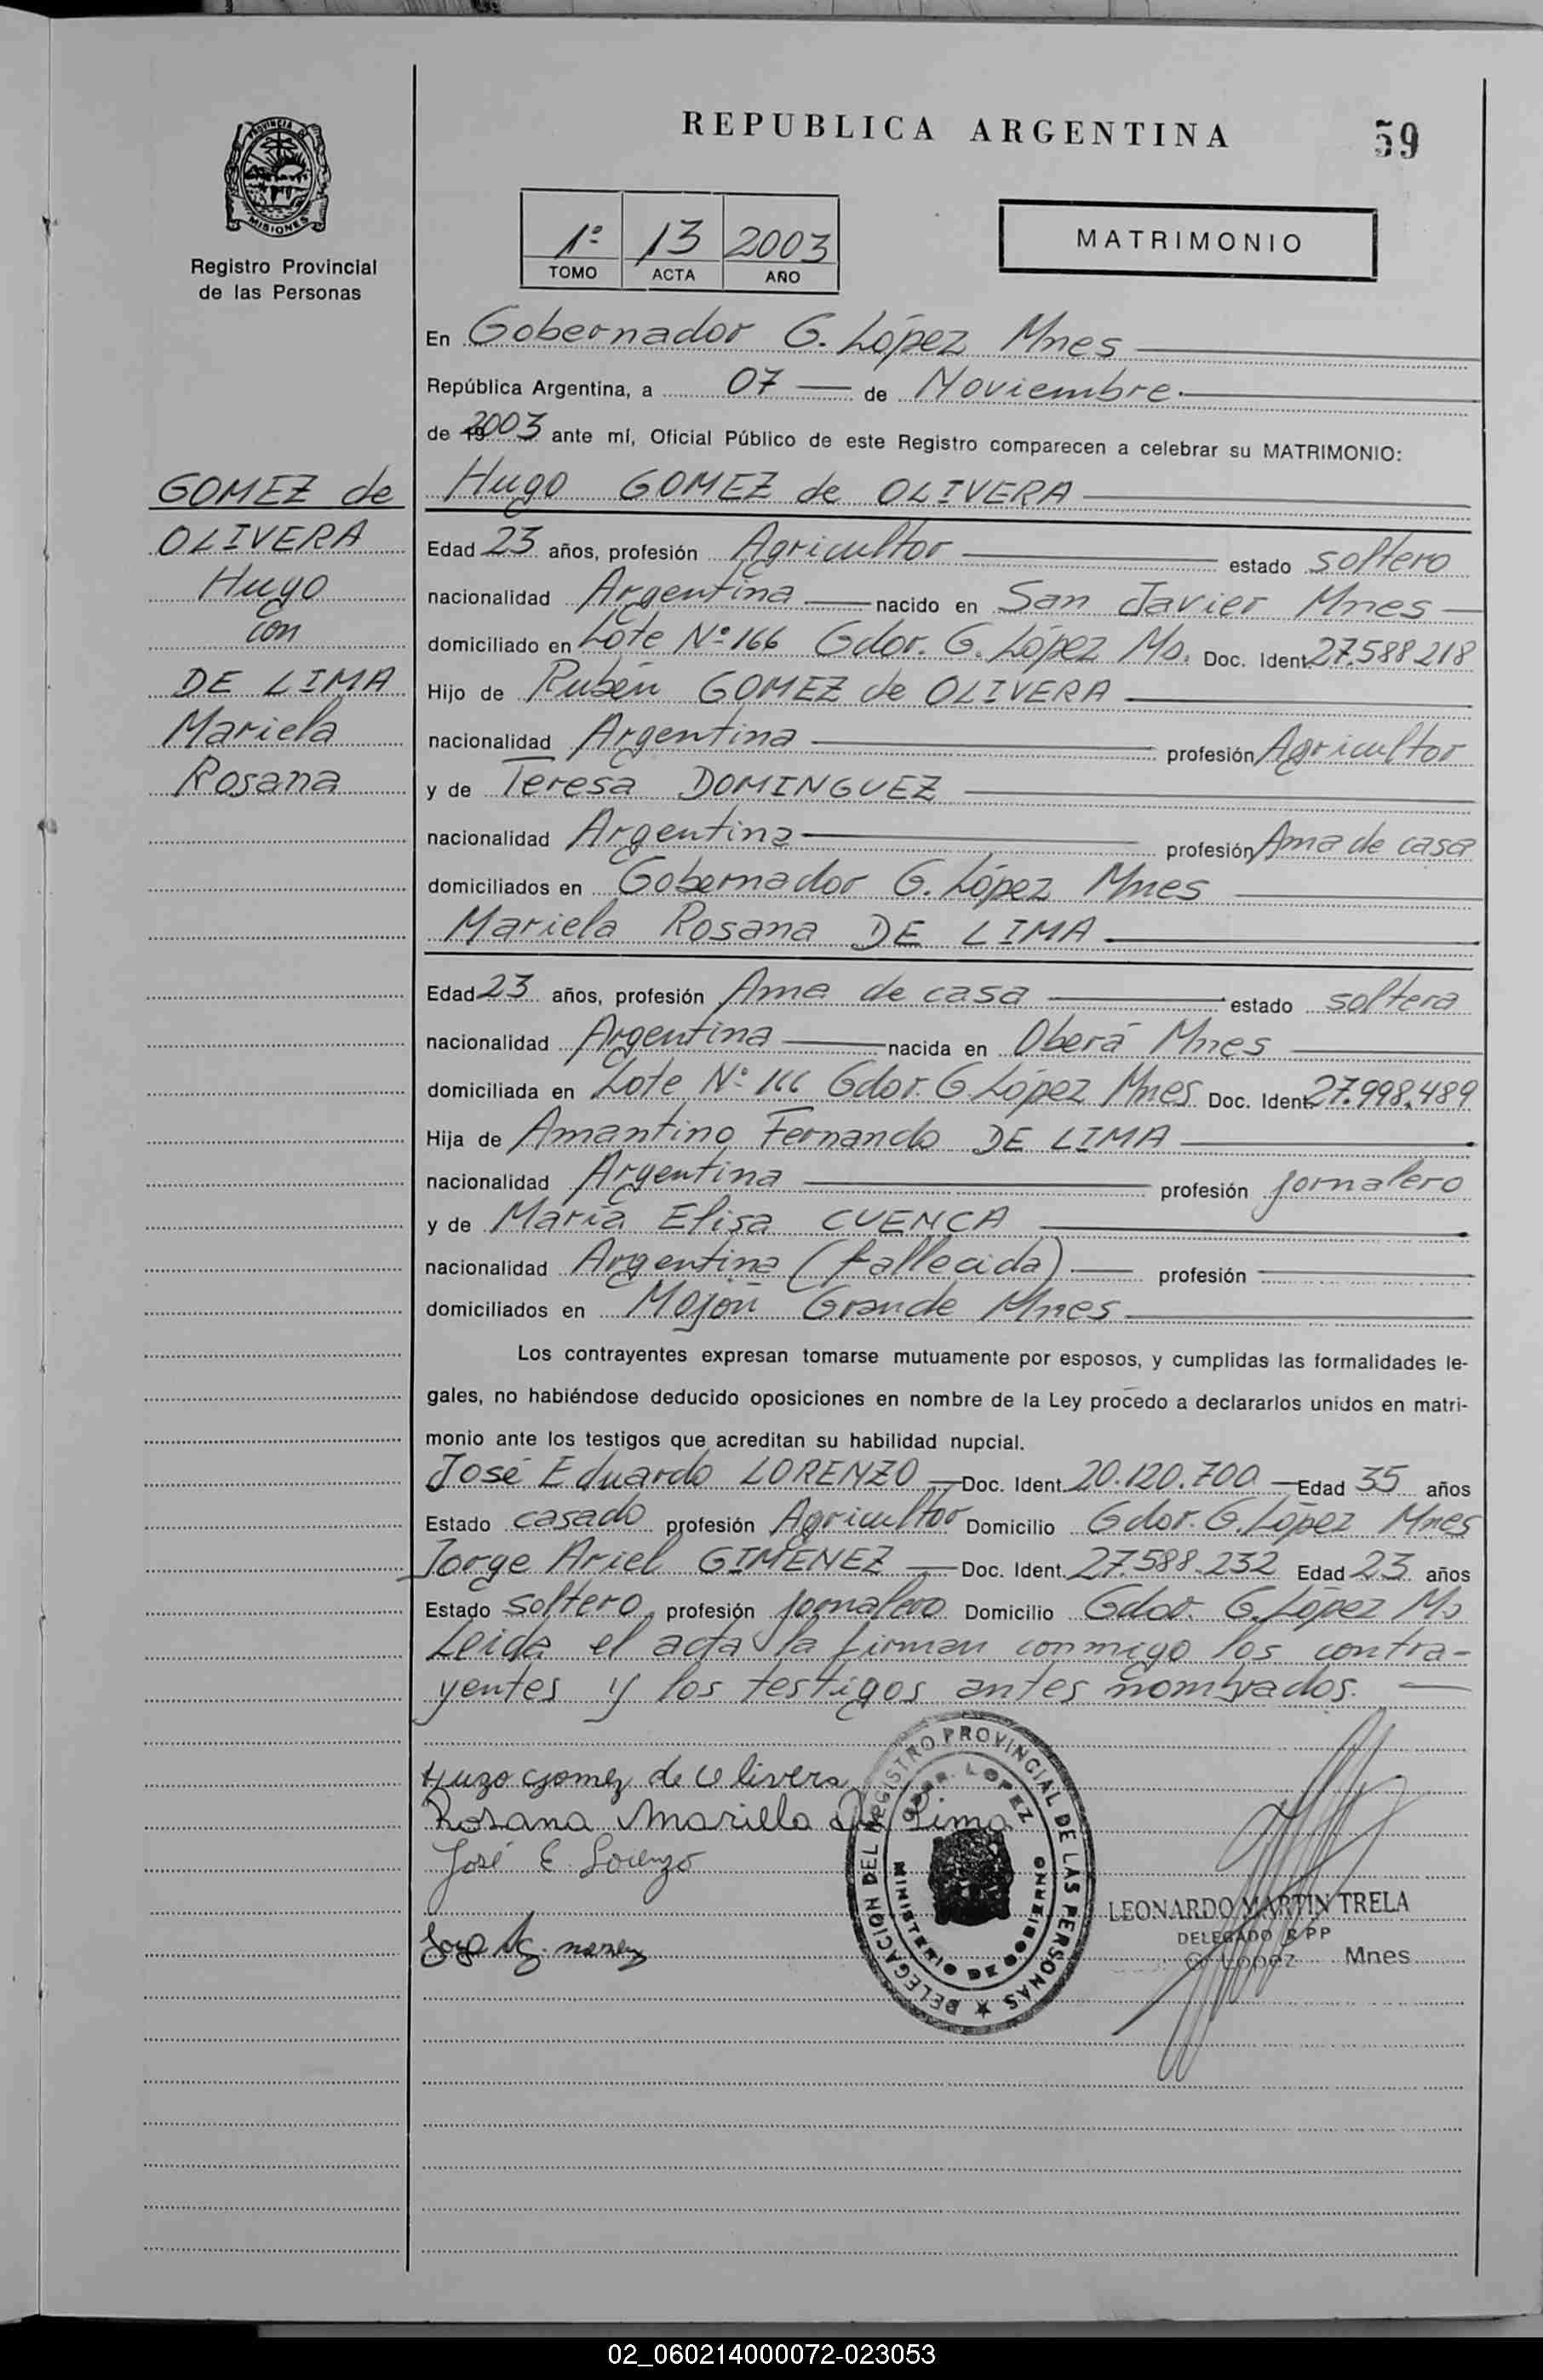 REPUBLICA ARGENTINA
59
PROVINCIA DE
MISIONES
Registro Provincial
de las Personas
1º 13 2003
TOMO ACTA AÑO
MATRIMONIO
En Gobernador G. López Mnes
República Argentina, a 07 de Noviembre
de 2003 ante mí, Oficial Público de este Registro comparecen a celebrar su MATRIMONIO:
GOMEZ de
OLIVERA
Hugo
con
DE LIMA
Mariela
Rosana
Hugo GOMEZ de OLIVERA
Edad 23 años, profesión Agricultor estado soltero
nacionalidad Argentina nacido en San Javier Mnes
domiciliado en Lote Nº 166 Gdor. G. López Ms. Doc. Ident. 27.588.218
Hijo de Rubén GOMEZ de OLIVERA
nacionalidad Argentina profesión Agricultor
y de Teresa DOMINGUEZ
nacionalidad Argentina profesión Ama de casa
domiciliados en Gobernador G. López Mnes
Mariela Rosana DE LIMA
Edad 23 años, profesión Ama de casa estado soltera
nacionalidad Argentina nacida en Oberá Mnes
domiciliada en Lote Nº 166 Gdor. G. López Mnes Doc. Ident. 27.998.489
Hija de Amantino Fernando DE LIMA
nacionalidad Argentina profesión jornalero
y de María Elisa CUENCA
nacionalidad Argentina (fallecida) profesión
domiciliados en Mojón Grande Mnes
Los contrayentes expresan tomarse mutuamente por esposos, y cumplidas las formalidades le-
gales, no habiéndose deducido oposiciones en nombre de la Ley procedo a declararlos unidos en matri-
monio ante los testigos que acreditan su habilidad nupcial.
José Eduardo LORENZO Doc. Ident. 20.120.700 Edad 35 años
Estado casado profesión Agricultor Domicilio Gdor. G. López Mnes
Jorge Ariel GIMENEZ Doc. Ident. 27.588.232 Edad 23 años
Estado soltero profesión jornalero Domicilio Gdor. G. López Ms
Leida el acta la firman conmigo los contra-
yentes y los testigos antes nombrados.
Hugo Gomez de Olivera
Rosana Mariela De Lima
José E. Lorenzo
DELEGACION DEL REGISTRO PROVINCIAL DE LAS PERSONAS
GDOR. LOPEZ
MINISTERIO DE GOBIERNO
LEONARDO MARTIN TRELA
DELEGADO R PP
G. Lopez Mnes
02_060214000072-023053